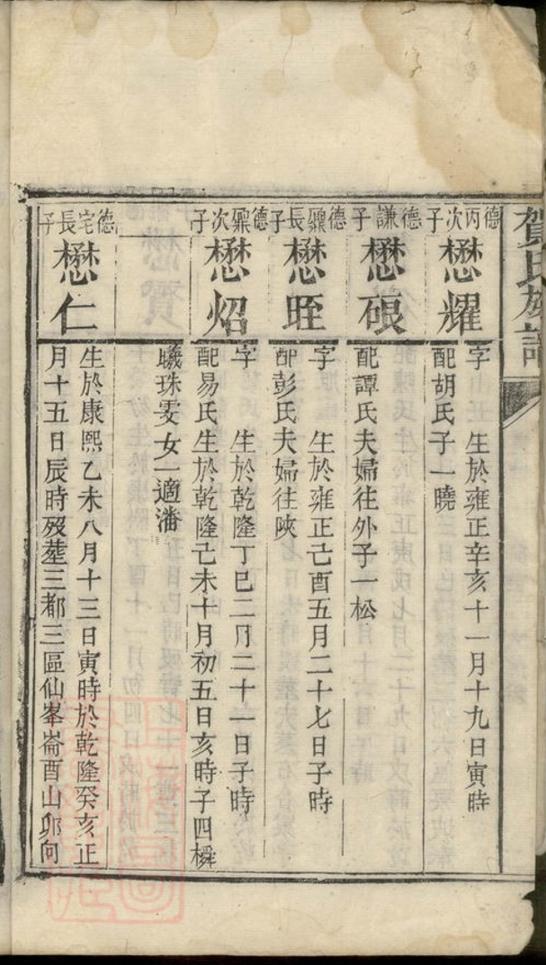 賀氏族譜
德丙次子
懋耀
字 生於雍正辛亥十一月十九日寅時
配胡氏子一曉
德謙子
懋硠
配譚氏夫婦往外子一松
德顯長子
懋眰
字 生於雍正己酉五月二十七日子時
配彭氏夫婦往陝
德顯次子
懋炤
字 生於乾隆丁巳二月二十一日子時
配易氏生於乾隆己未十月初五日亥時子四橓
曦珠雯女一適潘
德宅長子
懋仁
生於康熙乙未八月十三日寅時於乾隆癸亥正
月十五日辰時歿塟三都三區仙峯崙酉山卯向